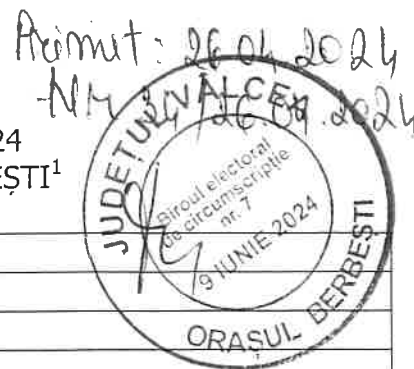 Primit: 26.04.2024
Nr. 24 / 26.04.2024
24
EȘTI¹
JUDEȚUL VÂLCEA
Biroul electoral
de circumscripție
nr. 7
9 IUNIE 2024
ORAȘUL BERBEȘTI